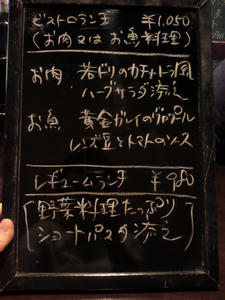 ビストロランチ ¥1,050
(お肉又は お魚料理)
お肉 若ドリのカチャトラ風
ハーブサラダ添え
お魚 黄金ガレイのグリエール
レンズ豆とトマトのソース
レギュームランチ ¥980
野菜料理たっぷり
ショートパスタ添え